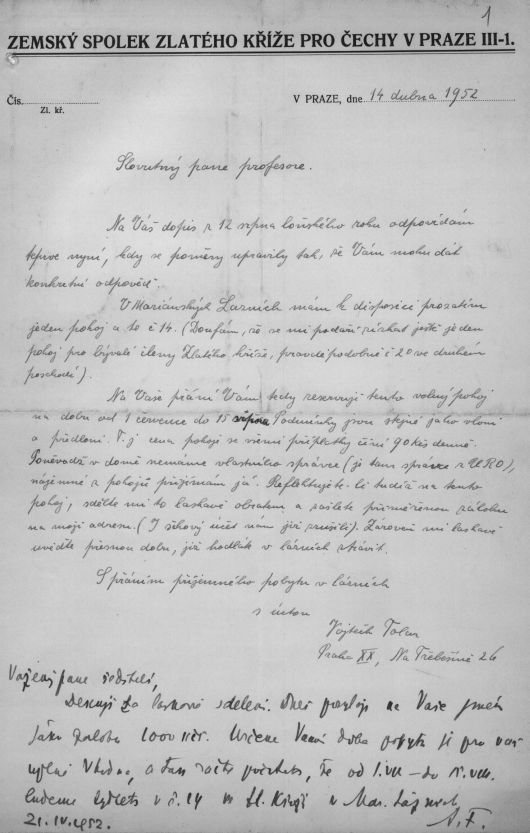 1
ZEMSKÝ SPOLEK ZLATÉHO KŘÍŽE PRO ČECHY V PRAZE III-1.
Čís.
Zl. kř.
V PRAZE, dne 14 dubna 1952
Slovutný pane profesore.
Na Váš dopis z 12 srpna loňského roku odpovídám
teprve nyní, kdy se poměry upravily tak, že Vám mohu dát
konkretní odpověď.
V Mariánských Lázních mám k disposici prozatím
jeden pokoj a to č 14. (Doufám, že se mi podaří získat ještě jeden
pokoj pro bývalé členy Zlatého kříže, pravděpodobně č 20 ve druhém
poschodí).
Na Vaše přání Vám tedy reservuji tento volný pokoj
na dobu od 1 července do 15 srpna. Podmínky jsou stejné jako vloni
a předloni. T.j. cena pokoje se všemi příplatky činí 90 Kčs denně.
Poněvadž v domě nemáme vlastního správce (je tam správce z URO),
nájemné z pokojů přijímám já. Reflektujete-li tudíž na tento
pokoj, sdělte mi to laskavě obratem a zašlete přiměřenou zálohu
na moji adresu. (I šekový účet nám již zrušili). Zároveň mi laskavě
uveďte přesnou dobu, již hodláte v lázních strávit.
S přáním příjemného pobytu v lázních
s úctou
Vojtěch Tolar
Praha XX, Na Třebešíně 26
Vážený pane řediteli,
Děkuji za laskavé sdělení. Dnes poukazuji na Vaše jméno
jako zálohu 1000 Kčs. Určená Vámi doba pobytu je pro nás
úplně vhodná, a tak račte počítati, že od 1.VII – do 15.VIII.
budeme bydleti v č. 14 ve Zl. Kříži v Mar. Lázních
21.IV.1952.